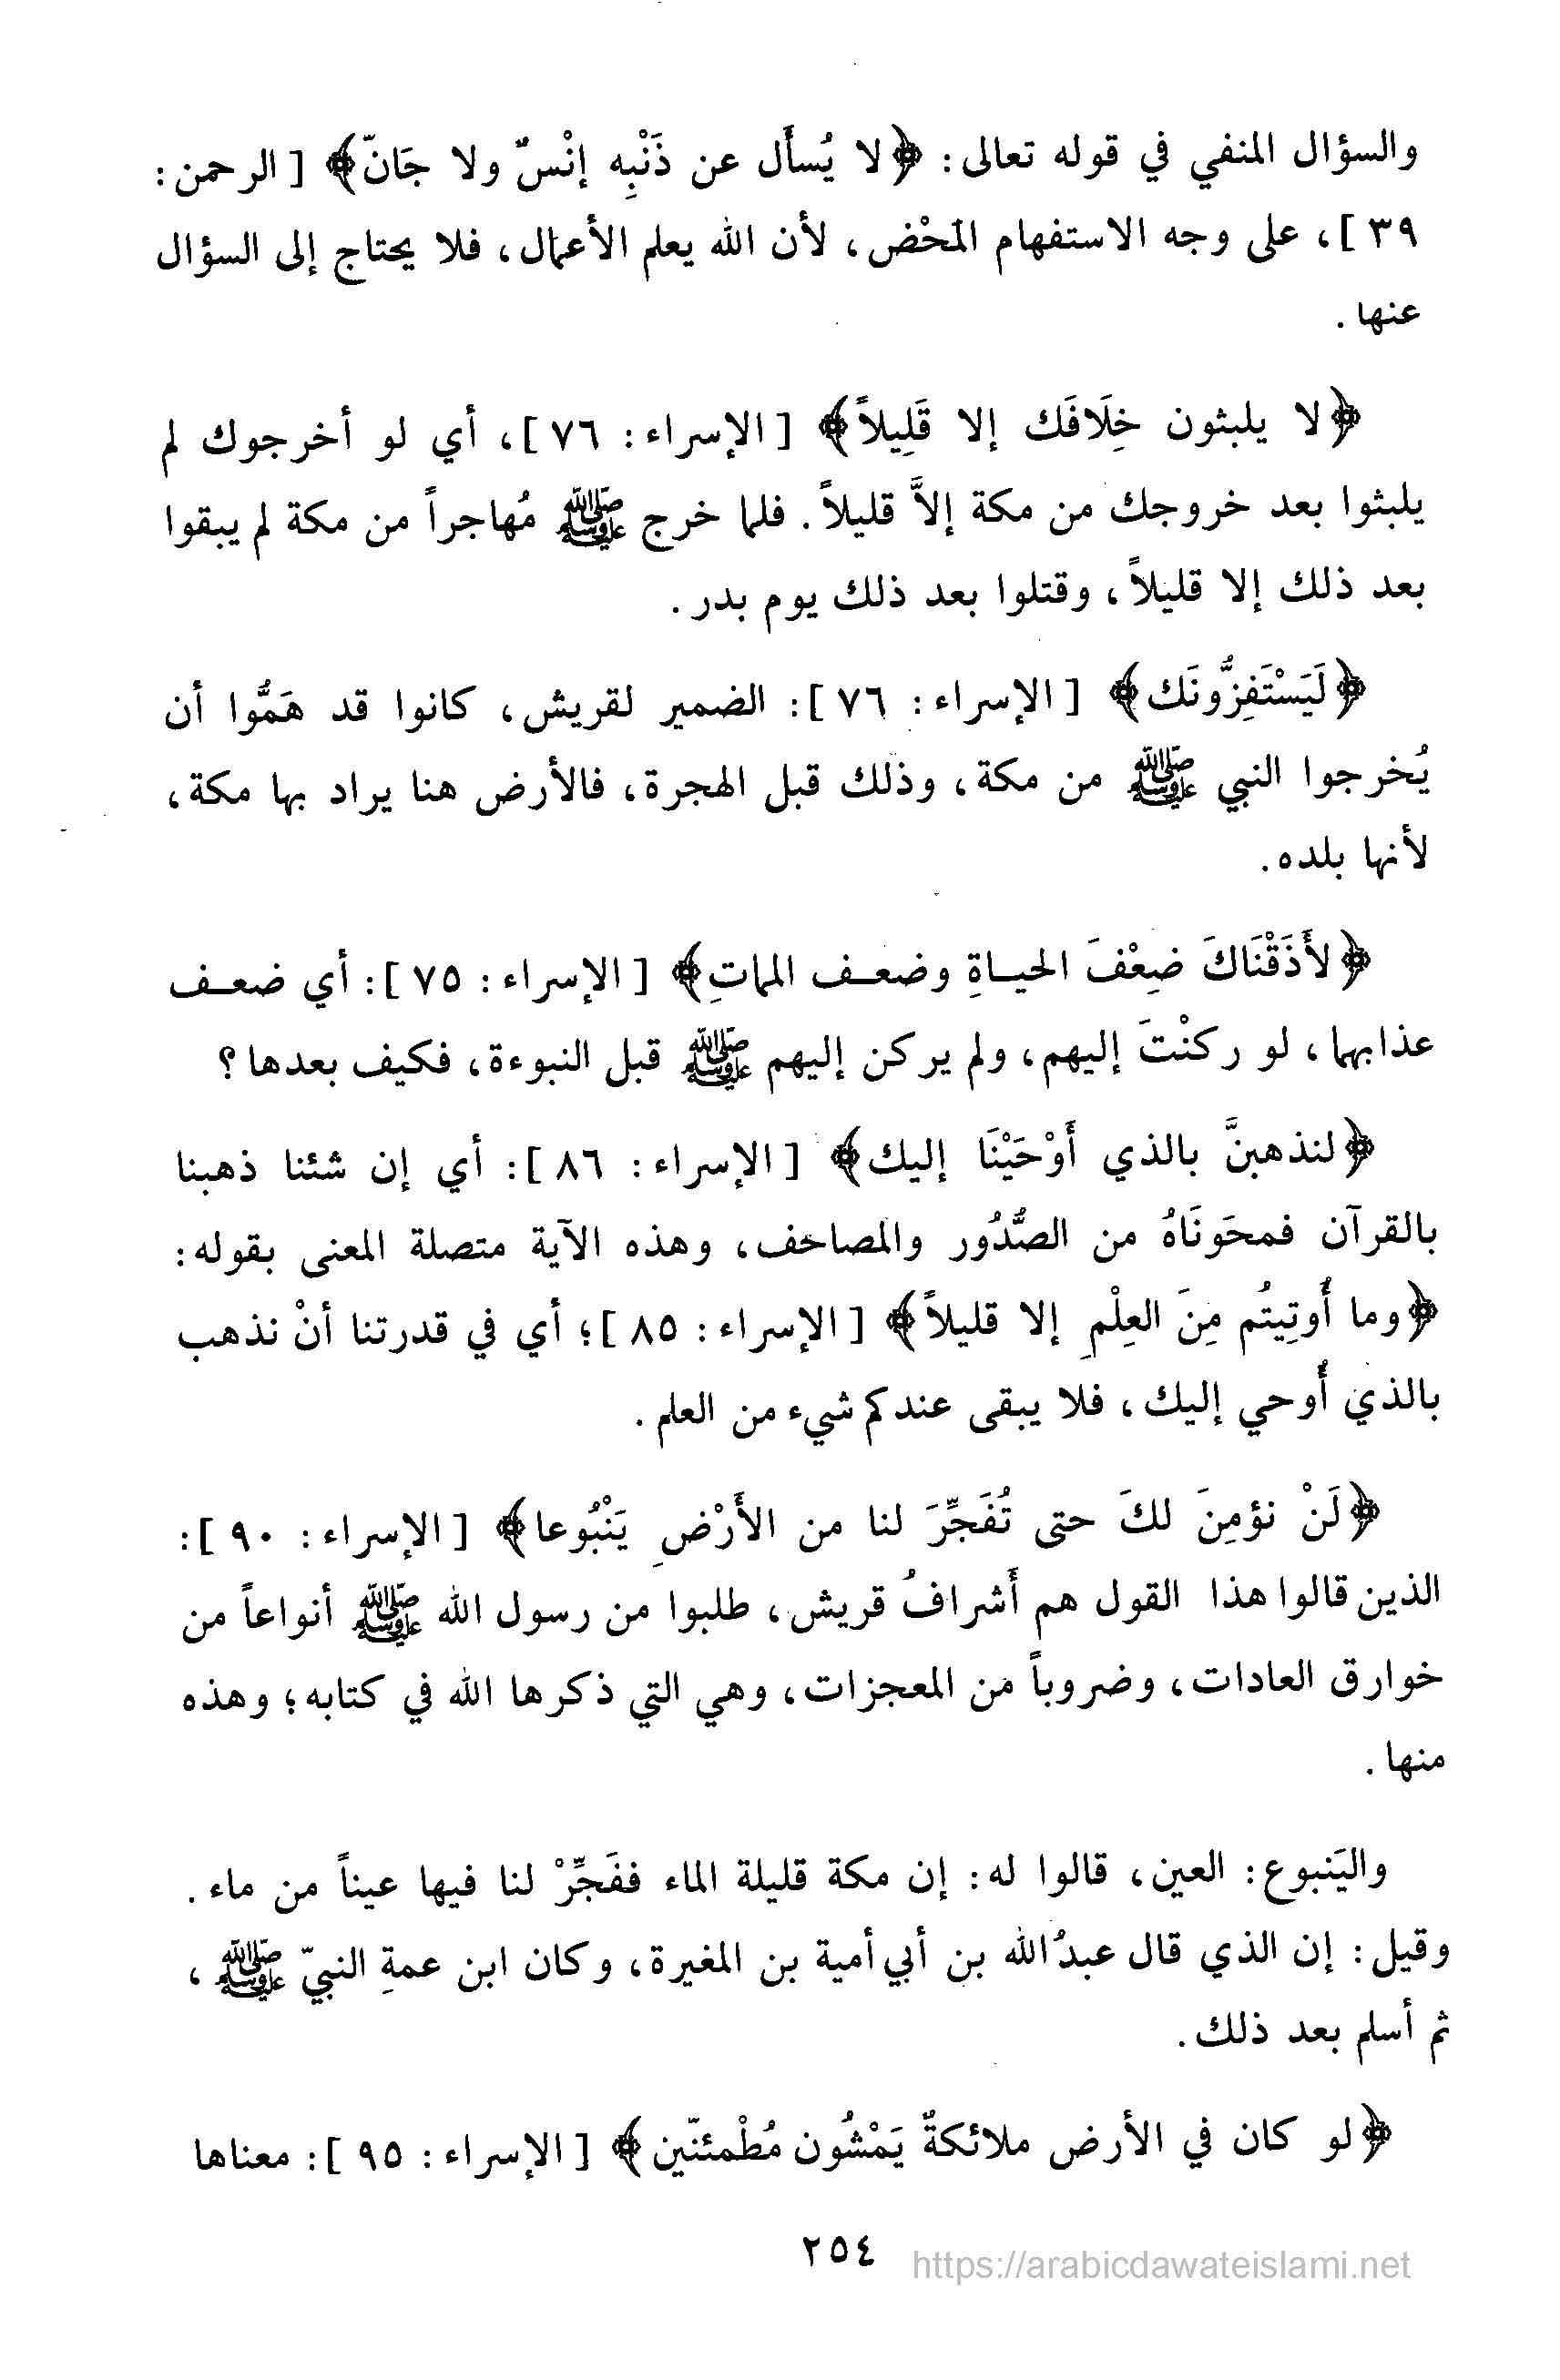 والسؤال المنفي في قوله تعالى: ﴿لا يُسأَل عن ذَنْبِه إنْسٌ ولا جَانّ﴾ [الرحمن:
٣٩]، على وجه الاستفهام المَحْض، لأن الله يعلم الأعمال، فلا يحتاج إلى السؤال
عنها.
﴿لا يلبثون خِلَافَك إلا قَلِيلاً﴾ [الإسراء: ٧٦]، أي لو أخرجوك لم
يلبثوا بعد خروجك من مكة إلاَّ قليلاً. فلما خرج ﷺ مُهاجراً من مكة لم يبقوا
بعد ذلك إلا قليلاً، وقتلوا بعد ذلك يوم بدر.
﴿لَيَسْتَفِزُّونَك﴾ [الإسراء: ٧٦]: الضمير لقريش، كانوا قد هَمُّوا أن
يُخرجوا النبي ﷺ من مكة، وذلك قبل الهجرة، فالأرض هنا يراد بها مكة،
لأنها بلده.
﴿لأَذَقْنَاكَ ضِعْفَ الحيـاةِ وضعـف المماتِ﴾ [الإسراء: ٧٥]: أي ضعـف
عذابهما، لو ركنْتَ إليهم، ولم يركن إليهم ﷺ قبل النبوءة، فكيف بعدها؟
﴿لنذهبنَّ بالذي أَوْحَيْنَا إليك﴾ [الإسراء: ٨٦]: أي إن شئنا ذهبنا
بالقرآن فمحَونَاهُ من الصُّدُور والمصاحف، وهذه الآية متصلة المعنى بقوله:
﴿وما أُوتِيتُم مِنَ العِلْمِ إلا قليلاً﴾ [الإسراء: ٨٥]؛ أي في قدرتنا أنْ نذهب
بالذي أُوحي إليك، فلا يبقى عندكم شيء من العلم.
﴿لَنْ نؤمِنَ لكَ حتى تُفَجِّرَ لنا من الأَرْضِ يَنْبُوعا﴾ [الإسراء: ٩٠]:
الذين قالوا هذا القول هم أَشرافُ قريش، طلبوا من رسول الله ﷺ أنواعاً من
خوارق العادات، وضروباً من المعجزات، وهي التي ذكرها الله في كتابه؛ وهذه
منها.
واليَنبوع: العين، قالوا له: إن مكة قليلة الماء ففَجِّرْ لنا فيها عيناً من ماء.
وقيل: إن الذي قال عبدُ الله بن أبي أمية بن المغيرة، وكان ابن عمةِ النبيّ ﷺ،
ثم أسلم بعد ذلك.
﴿لو كان في الأرض ملائكةٌ يَمْشُون مُطْمئنّين﴾ [الإسراء: ٩٥]: معناها
٢٥٤
https://arabicdawateislami.net